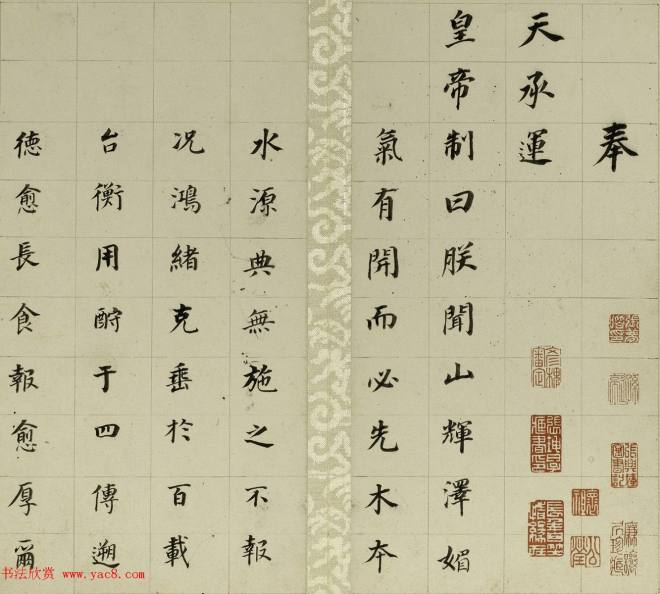 奉
天承運
皇帝制曰朕聞山輝澤媚
氣有開而必先木本
水源典無施之不報
況鴻緒克垂於百載
台衡用酧于四傳遡
德愈長食報愈厚爾
书法欣赏 www.yac8.com